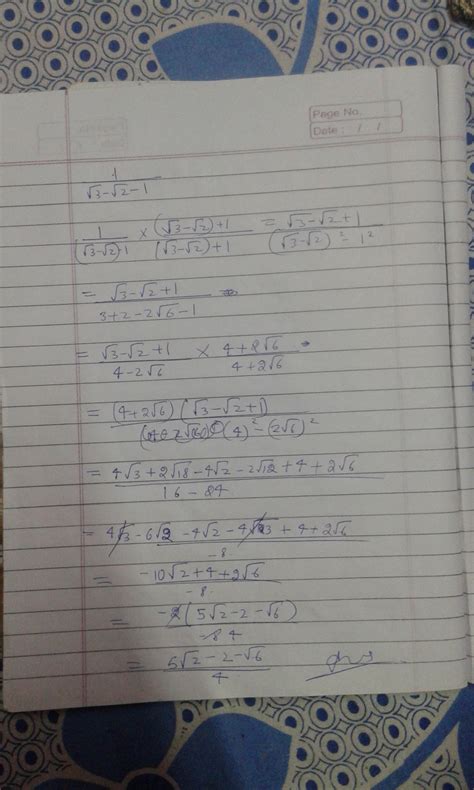 Page No.
Date : / /
1/(√3-√2-1)
1/((√3-√2)-1) × ((√3-√2)+1)/((√3-√2)+1) = (√3-√2+1)/((√3-√2)²-1²)
= (√3-√2+1)/(3+2-2√6-1)
= (√3-√2+1)/(4-2√6) × (4+2√6)/(4+2√6)
= (4+2√6)(√3-√2+1)/((4)²-(2√6)²)
= (4√3+2√18-4√2-2√12+4+2√6)/(16-24)
= (4√3-6√2-4√2-4√3+4+2√6)/-8
= (-10√2+4+2√6)/-8
= -2(5√2-2-√6)/-8 4
= (5√2-2-√6)/4 Ans